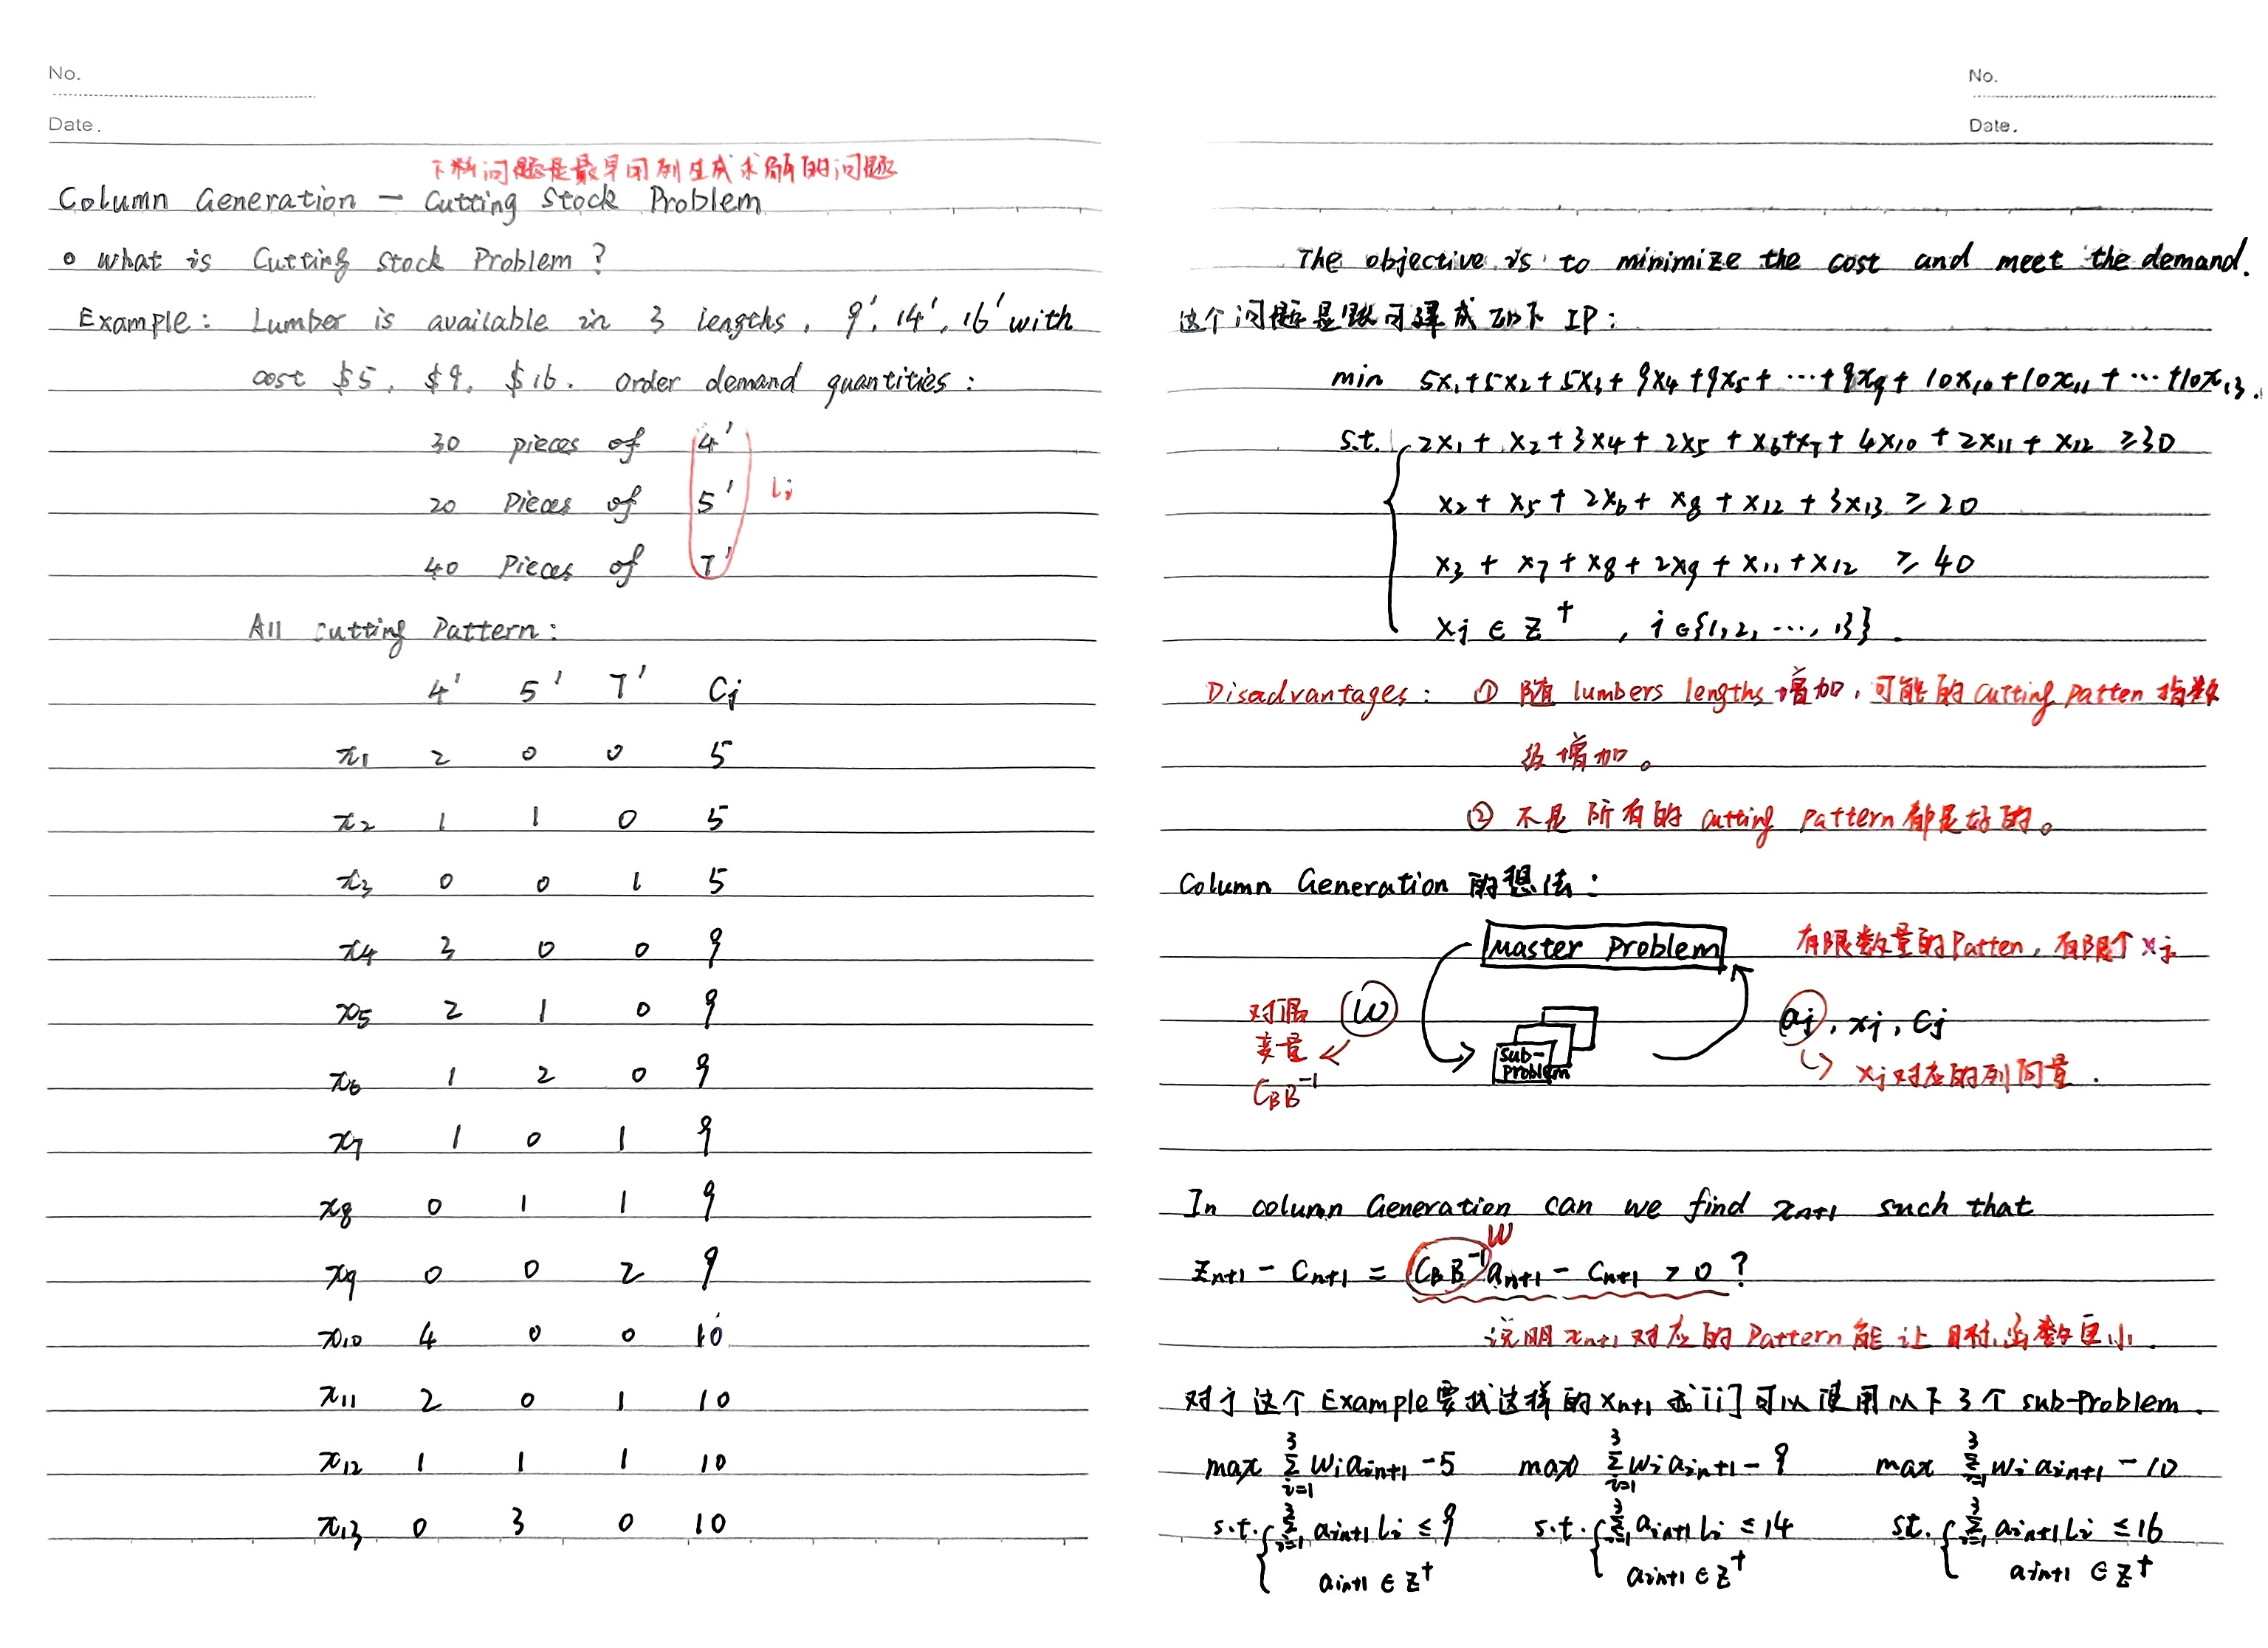 No.
Date.
下料问题是最早用列生成求解的问题
Column Generation — Cutting Stock Problem
o What is Cutting Stock Problem?
Example: Lumber is available in 3 lengths, 9', 14', 16' with
cost $5, $9, $16. Order demand quantities:
30 pieces of 4'
20 Pieces of 5' Li
40 Pieces of 7'
All Cutting Pattern:
4' 5' 7' Cj
x1 2 0 0 5
x2 1 1 0 5
x3 0 0 1 5
x4 3 0 0 9
x5 2 1 0 9
x6 1 2 0 9
x7 1 0 1 9
x8 0 1 1 9
x9 0 0 2 9
x10 4 0 0 10
x11 2 0 1 10
x12 1 1 1 10
x13 0 3 0 10
No.
Date.
The objective is to minimize the cost and meet the demand.
这个问题是可建成如下 IP:
min 5x1+5x2+5x3+9x4+9x5+⋯+9x9+10x10+10x11+⋯+10x13.
s.t. 2x1+x2+3x4+2x5+x6+x7+4x10+2x11+x12 ≥30
x2+x5+2x6+x8+x12+3x13 ≥20
x3+x7+x8+2x9+x11+x12 ≥40
xj ∈ Z+, i∈{1,2,⋯,13}.
Disadvantages: ① 随 lumbers lengths 增加,可能的 cutting patten 指数
级增加。
② 不是所有的 cutting pattern 都是好的。
Column Generation 的想法:
Master Problem
有限数量的Patten,有限个 xj
对偶
变量
CBB⁻¹
w
sub-
problem
aj, xj, Cj
xj对应的列向量.
In column Generation can we find xn+1 such that
w
Zn+1 - Cn+1 = CBB⁻¹an+1 - Cn+1 > 0 ?
说明 xn+1 对应的 Pattern 能让目标函数更小.
对于这个 Example 要找这样的 xn+1 我们可以使用以下 3 个 sub-Problem.
max ∑³ᵢ₌₁ wi ain+1 - 5 max ∑³ᵢ₌₁ wi ain+1 - 9 max ∑³ᵢ₌₁ wi ain+1 - 10
s.t. { ∑³ᵢ₌₁ ain+1 Li ≤ 9 s.t. { ∑³ᵢ₌₁ ain+1 Li ≤ 14 s.t. { ∑³ᵢ₌₁ ain+1 Li ≤ 16
ain+1 ∈ Z+ ain+1 ∈ Z+ ain+1 ∈ Z+